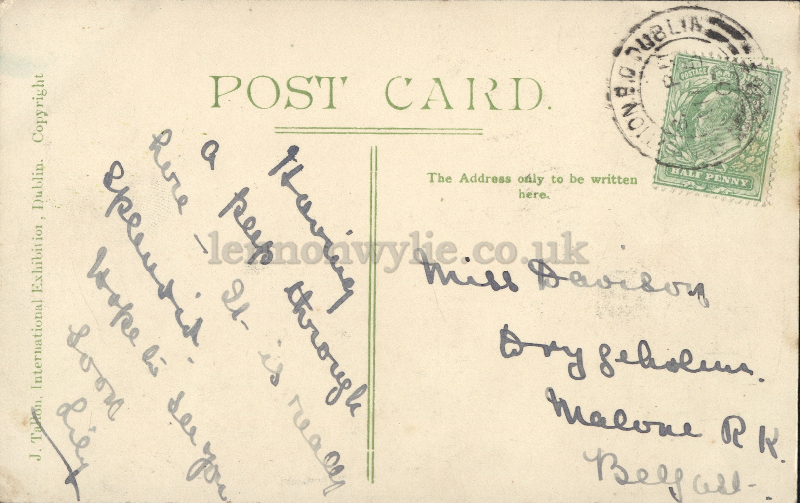 POST CARD.
The Address only to be written
here.
J. Tallon, International Exhibition, Dublin. Copyright
Having
a peep through
here - It is really
splendid.
Hope to see you
soon
Lily
Miss Davison
Malone Pk.
Belfast.
DUBLIN
POSTAGE
HALF PENNY
lennonwylie.co.uk